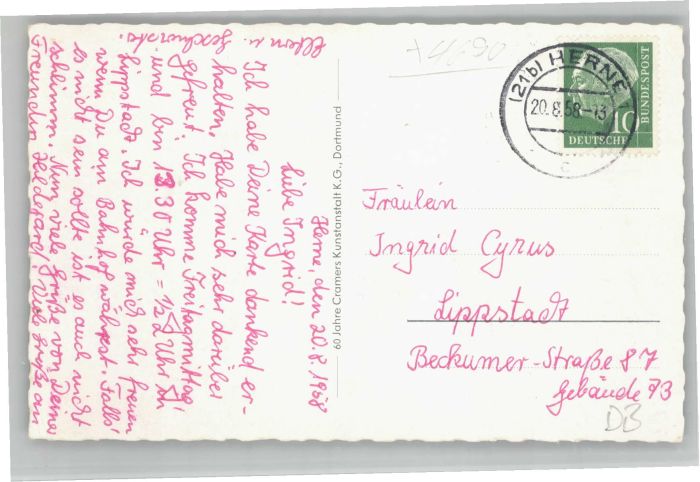 Herne, den 20.8.1958
Liebe Ingrid!
Ich habe Deine Karte dankend er-
halten. Habe mich sehr darüber
gefreut. Ich komme Freitagmittag
und bin 13 30 Uhr = 1/2 2 Uhr in
Lippstadt. Ich würde mich sehr freuen
wenn Du am Bahnhof währest. Falls
es nicht sein sollte ist es auch nicht
schlimm. Nun viele Grüße von Deiner
Freundin Hildgard! Viele Grüße an
Eltern u. Geschwister.
60 Jahre Cramers Kunstanstalt K.G., Dortmund
(21b) HERNE
20.8.58.-13
c
10
DEUTSCHE
BUNDESPOST
Fräulein
Ingrid Cyrus
Lippstadt
Beckumer-Straße 87
Gebäude 93
DB